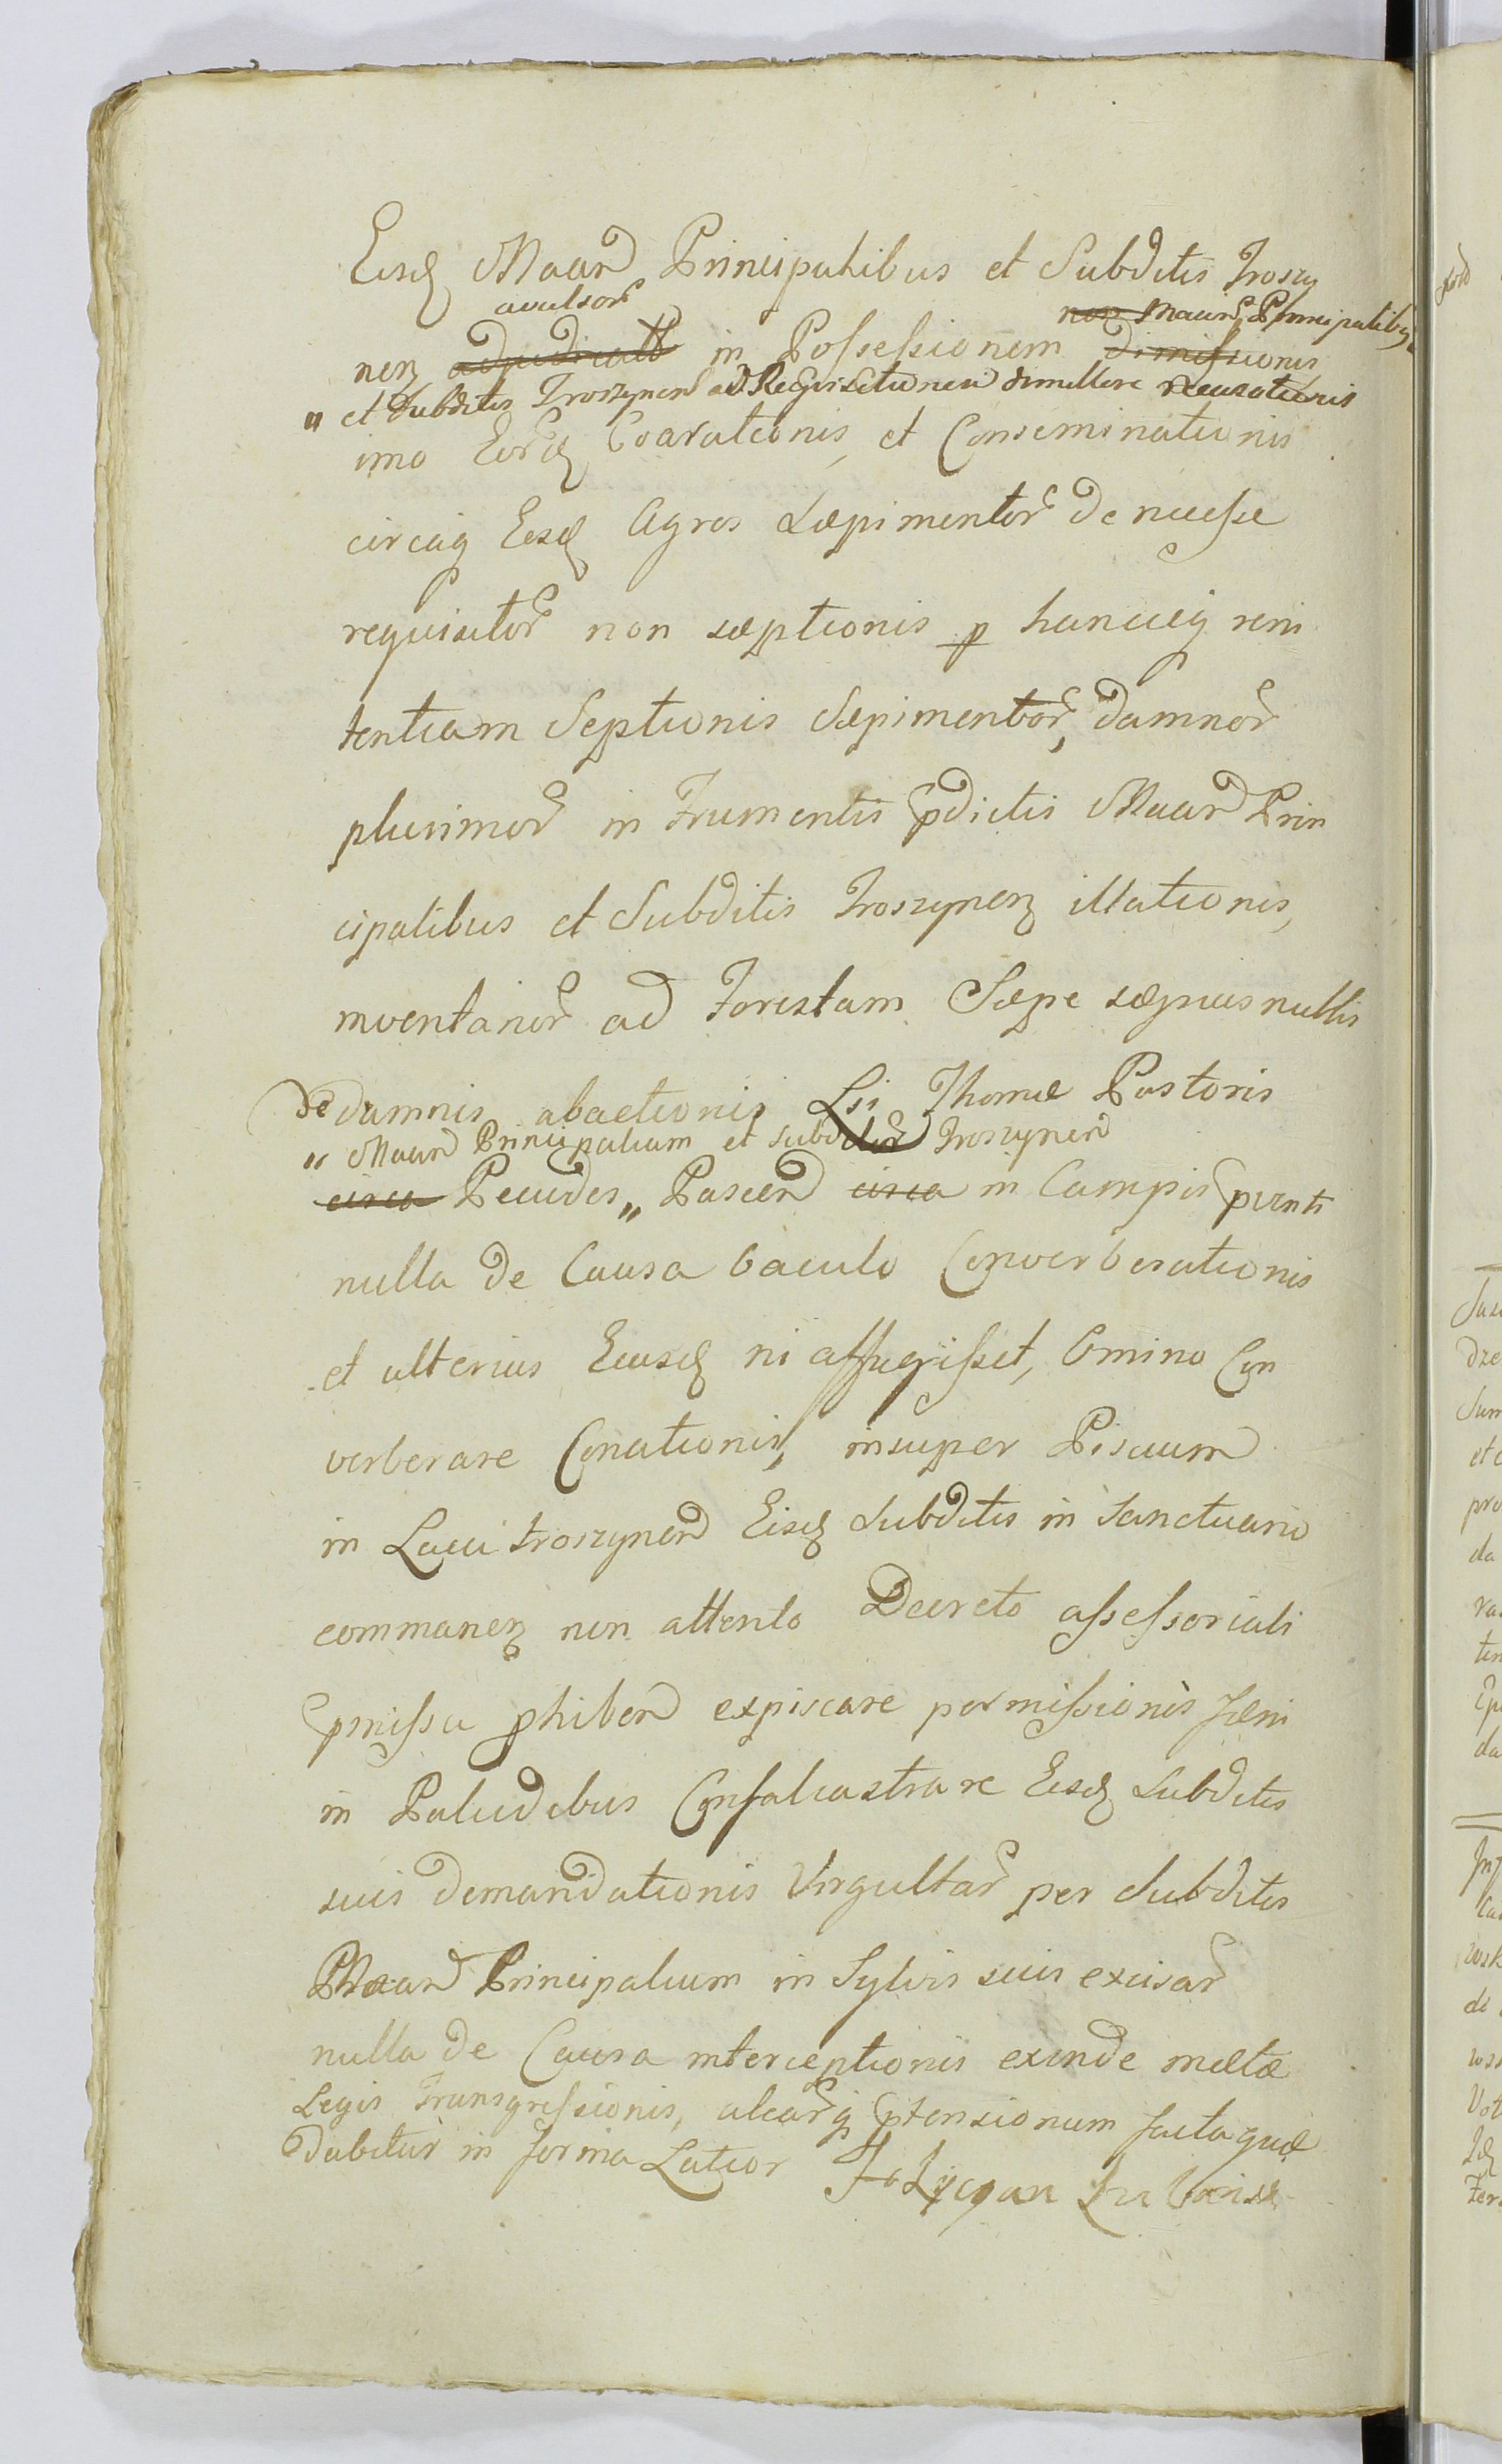 Eisd Maar Principalibus et Subditis Troszy
avulsor
non Maar Principalibq
nen adjudicatt in Possessionem dimissionis
" et Subditis Troszynen ad Requisitionem dimittere recusationis
imo Eord Coarationis, et Conseminationis
circaq Eosd Agros Sæpimentor de necesse
requisitor non sæptionis p hancceq reni
tentiam Septionis Sæpimentor, damnor
plurimor in Frumentis pdictis Maar Prin
cipalibus et Subditis Troszynen illationis,
inventarior ad Forestam Sæpe sæpius nullis
de damnis abactionis Lsi Thomæ Pastoris
" Maar Principalium et subditor Troszynen
circa Pecudes „ Pascen circa in Campis
nulla de Causa baculo Converberationis
et ulterius Eiusd ni affugisset, Omino Con
verberare Conationis, insuper Piscium
in Lacu Troszynen Eisd Subditis in Sanctuario
commanen non attento Decreto assessoriali
pmissa phiben expiscare permissionis Fæni
in Paludibus Confalcastrare Eisd Subditis
suis demandationis Virgultar per Subditos
Maar Principalium in Sylvis suis excisar
nulla de Causa interceptionis exinde mctæ
Legis Transgressionis, aliarq ptensionum facta quæ
dabitur in forma Latior